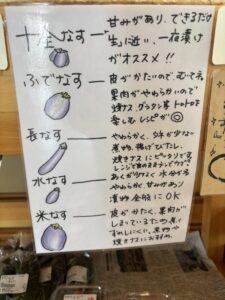 十全なす
甘みがあり、できるだけ
「生」に近い、一夜漬け
がオススメ!!
ふでなす
皮がかたいので、むいて。
果肉がやわらかいので
焼ナス、グラタン等 トマトを
使うレシピが◎
長なす
やわらかく、タネが少なく
煮物、揚げびたし、
焼きナスにピッタリです。
水なす
あくが少なく 水分が多
やわらか、甘みがあり
漬物全般にOK
米なす
皮がかたく、果肉が
しまっているため、煮く
ずれしにくい、煮物や
焼きナスにお勧め。